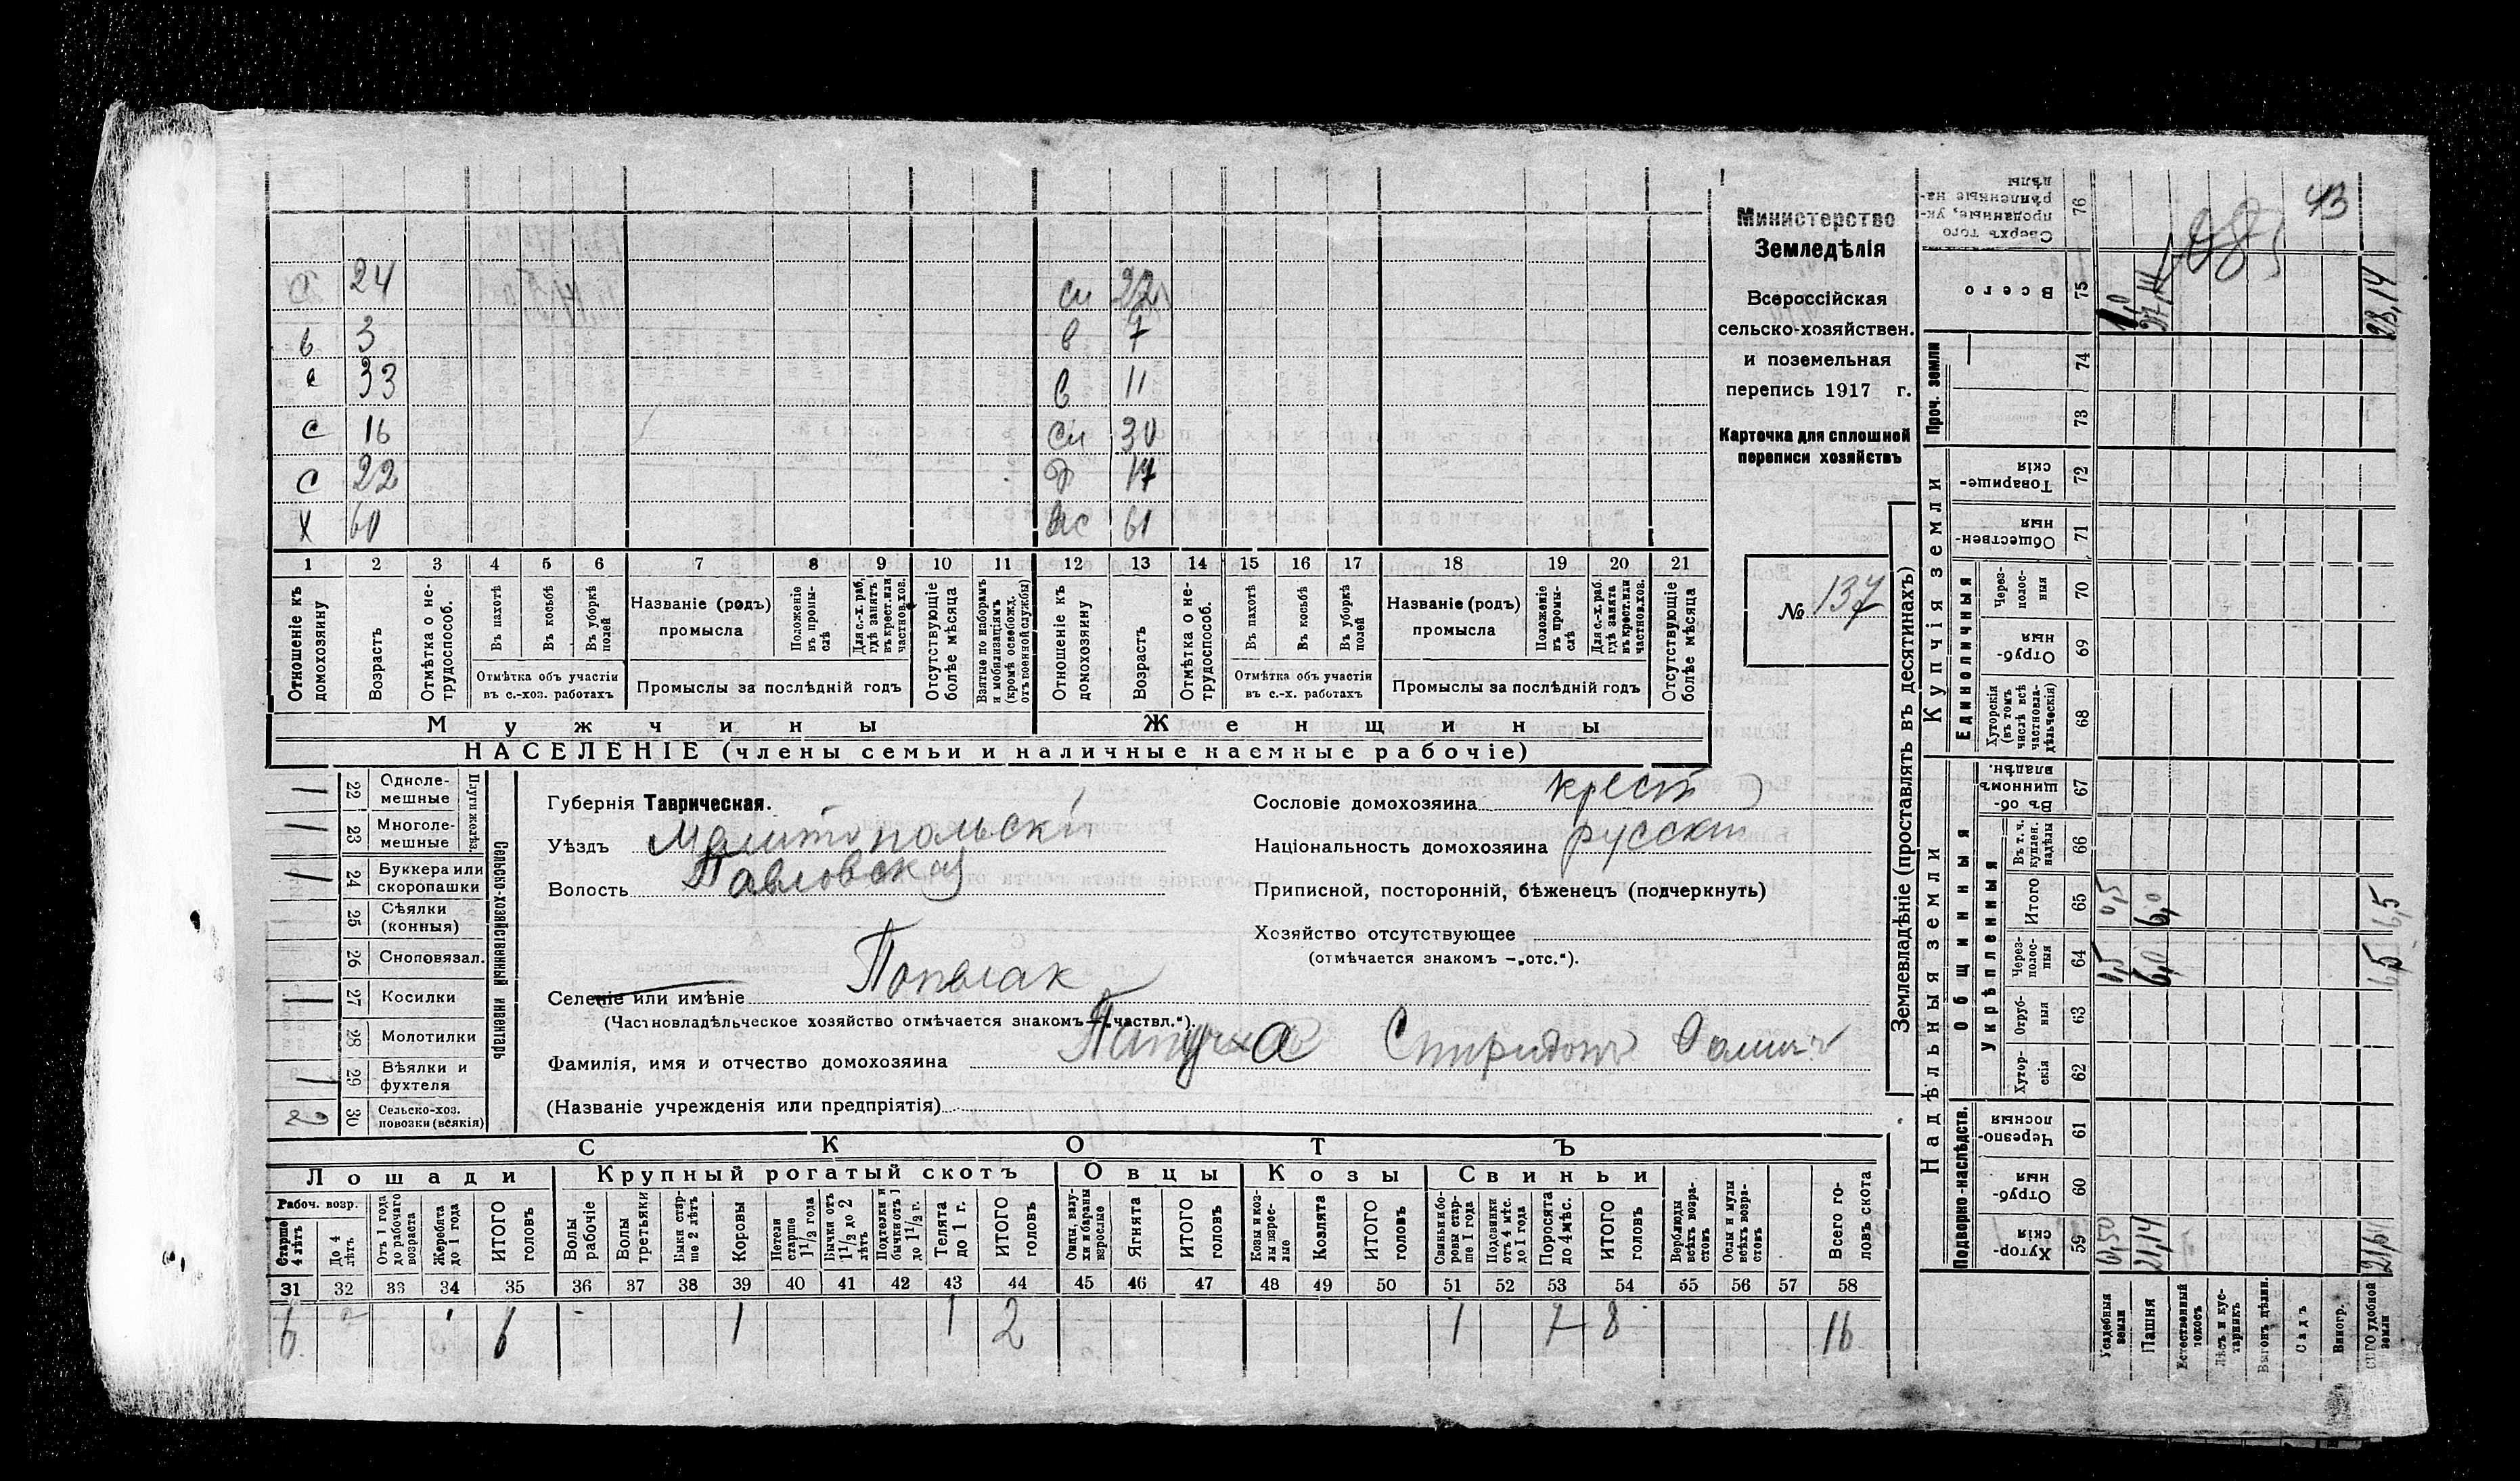 43
С 24 сн 22
в 3 в 7
с 33 в 11
с 16 сн 30
С 22 Д 17
Х 60 жс 61
1 2 3 4 5 6 7 8 9 10 11 12 13 14 15 16 17 18 19 20 21
Отношеніе къ домохозяину
Возрастъ
Отмѣтка о не-трудоспособ.
Въ пахотѣ
Въ косьбѣ
Въ уборкѣ полей
Отмѣтка объ участіи
въ с.-хоз. работахъ
Названіе (родъ)
промысла
Положеніе въ промы-слѣ
Для с.-х. раб, гдѣ занятъ въ крест. или частнов. хоз.
Промыслы за послѣдній годъ
Отсутствующіе болѣе мѣсяца
Взятые по наборамъ и мобилизаціямъ (кромѣ освобожд. отъ военной службы)
Отношеніе къ домохозяину
Возрастъ
Отмѣтка о не-трудоспособ.
Въ пахотѣ
Въ косьбѣ
Въ уборкѣ полей
Отмѣтка объ участіи
въ с.-х. работахъ
Названіе (родъ)
промысла
Положеніе въ промы-слѣ
Для с.-х. раб. гдѣ занята въ крест. или частнов. хоз.
Промыслы за послѣдній годъ
Отсутствующіе болѣе мѣсяца
Мужчины Женщины
НАСЕЛЕНІЕ (члены семьи и наличные наемные рабочіе)
Министерство
Земледѣлія
Всероссійская
сельско-хозяйствен.
и поземельная
перепись 1917 г.
Карточка для сплошной
переписи хозяйствъ
№ 137
Сельско-хозяйственный инвентарь
Плуги желѣз.
22 Одноле-мешные 1
23 Многоле-мешные 1
24 Буккера или скоропашки 1
25 Сѣялки (конныя)
26 Сноповязал.
27 Косилки 1
28 Молотилки
29 Вѣялки и фухтеля 1
30 Сельско-хоз. повозки (всякія) 2
Губернія Таврическая.
Уѣздъ Мелитопольскій
Волость Павловская
Селеніе или имѣніе
(Частновладѣльческое хозяйство отмѣчается знакомъ—„частвл.“).
Фамилія, имя и отчество домохозяина Спиридонъ
(Названіе учрежденія или предпріятія)
Сословіе домохозяина крест
Національность домохозяина русскій
Приписной, посторонній, бѣженецъ (подчеркнуть)
Хозяйство отсутствующее
(отмѣчается знакомъ —„отс.“).
СКОТЪ
Лошади Крупный рогатый скотъ Овцы Козы Свиньи
Рабоч. возр.
Старше 4 лѣтъ
До 4 лѣтъ
Отъ 1 года до рабочаго возраста
Жеребята до 1 года
ИТОГО головъ
Волы рабочіе
Волы третьяки
Быки стар-ше 2 лѣтъ
Коровы
Нетели старше 1½ года
Бычки отъ 1½ до 2 лѣтъ
Подтелки и бычки отъ 1 до 1½ г.
Телята до 1 г.
ИТОГО головъ
Овцы, валу-хи и бараны взрослые
Ягнята
ИТОГО головъ
Козы и коз-лы взрос-лые
Козлята
ИТОГО головъ
Свиньи и бо-ровы стар-ше 1 года
Подсвинки отъ 4 мѣс. до 1 года
Поросята до 4 мѣс.
ИТОГО головъ
Верблюды всѣхъ возра-стовъ
Ослы и мулы всѣхъ возра-стовъ
Всего го-ловъ скота
31 32 33 34 35 36 37 38 39 40 41 42 43 44 45 46 47 48 49 50 51 52 53 54 55 56 57 58
6 6 1 1 2 1 7 8 16
Землевладѣніе (проставлять въ десятинахъ)
Надѣльныя земли Купчія земли Проч. земли
Подворно-наслѣдств. Общинныя Единоличныя
Укрѣпленныя
Хутор-скія 59
Отруб-ныя 60
Черезпо-лосныя 61
Хутор-скія 62
Отруб-ныя 63
Через-полос-ныя 64
Итого 65
Въ т. ч. куплен. надѣлы 66
Въ об-щинномъ владѣн. 67
Хуторскія (въ томъ числѣ всѣ частновла-дѣльческія) 68
Отруб-ныя 69
Через-полос-ныя 70
Обществен-ныя 71
Товарище-скія 72
73
74
Всего 75
Сверхъ того проданные, ук-рѣпленные на-дѣлы 76
Усадебныя земли 0,50 0,5 0,5 1,0
Пашня 21,14 6,0 6,0 27,14
Естественный токосъ
Лѣсъ и кус-тарникъ
Выгонъ цѣлин.
Садъ
Виногр.
удобной земли 21,64 6,5 6,5 28,14